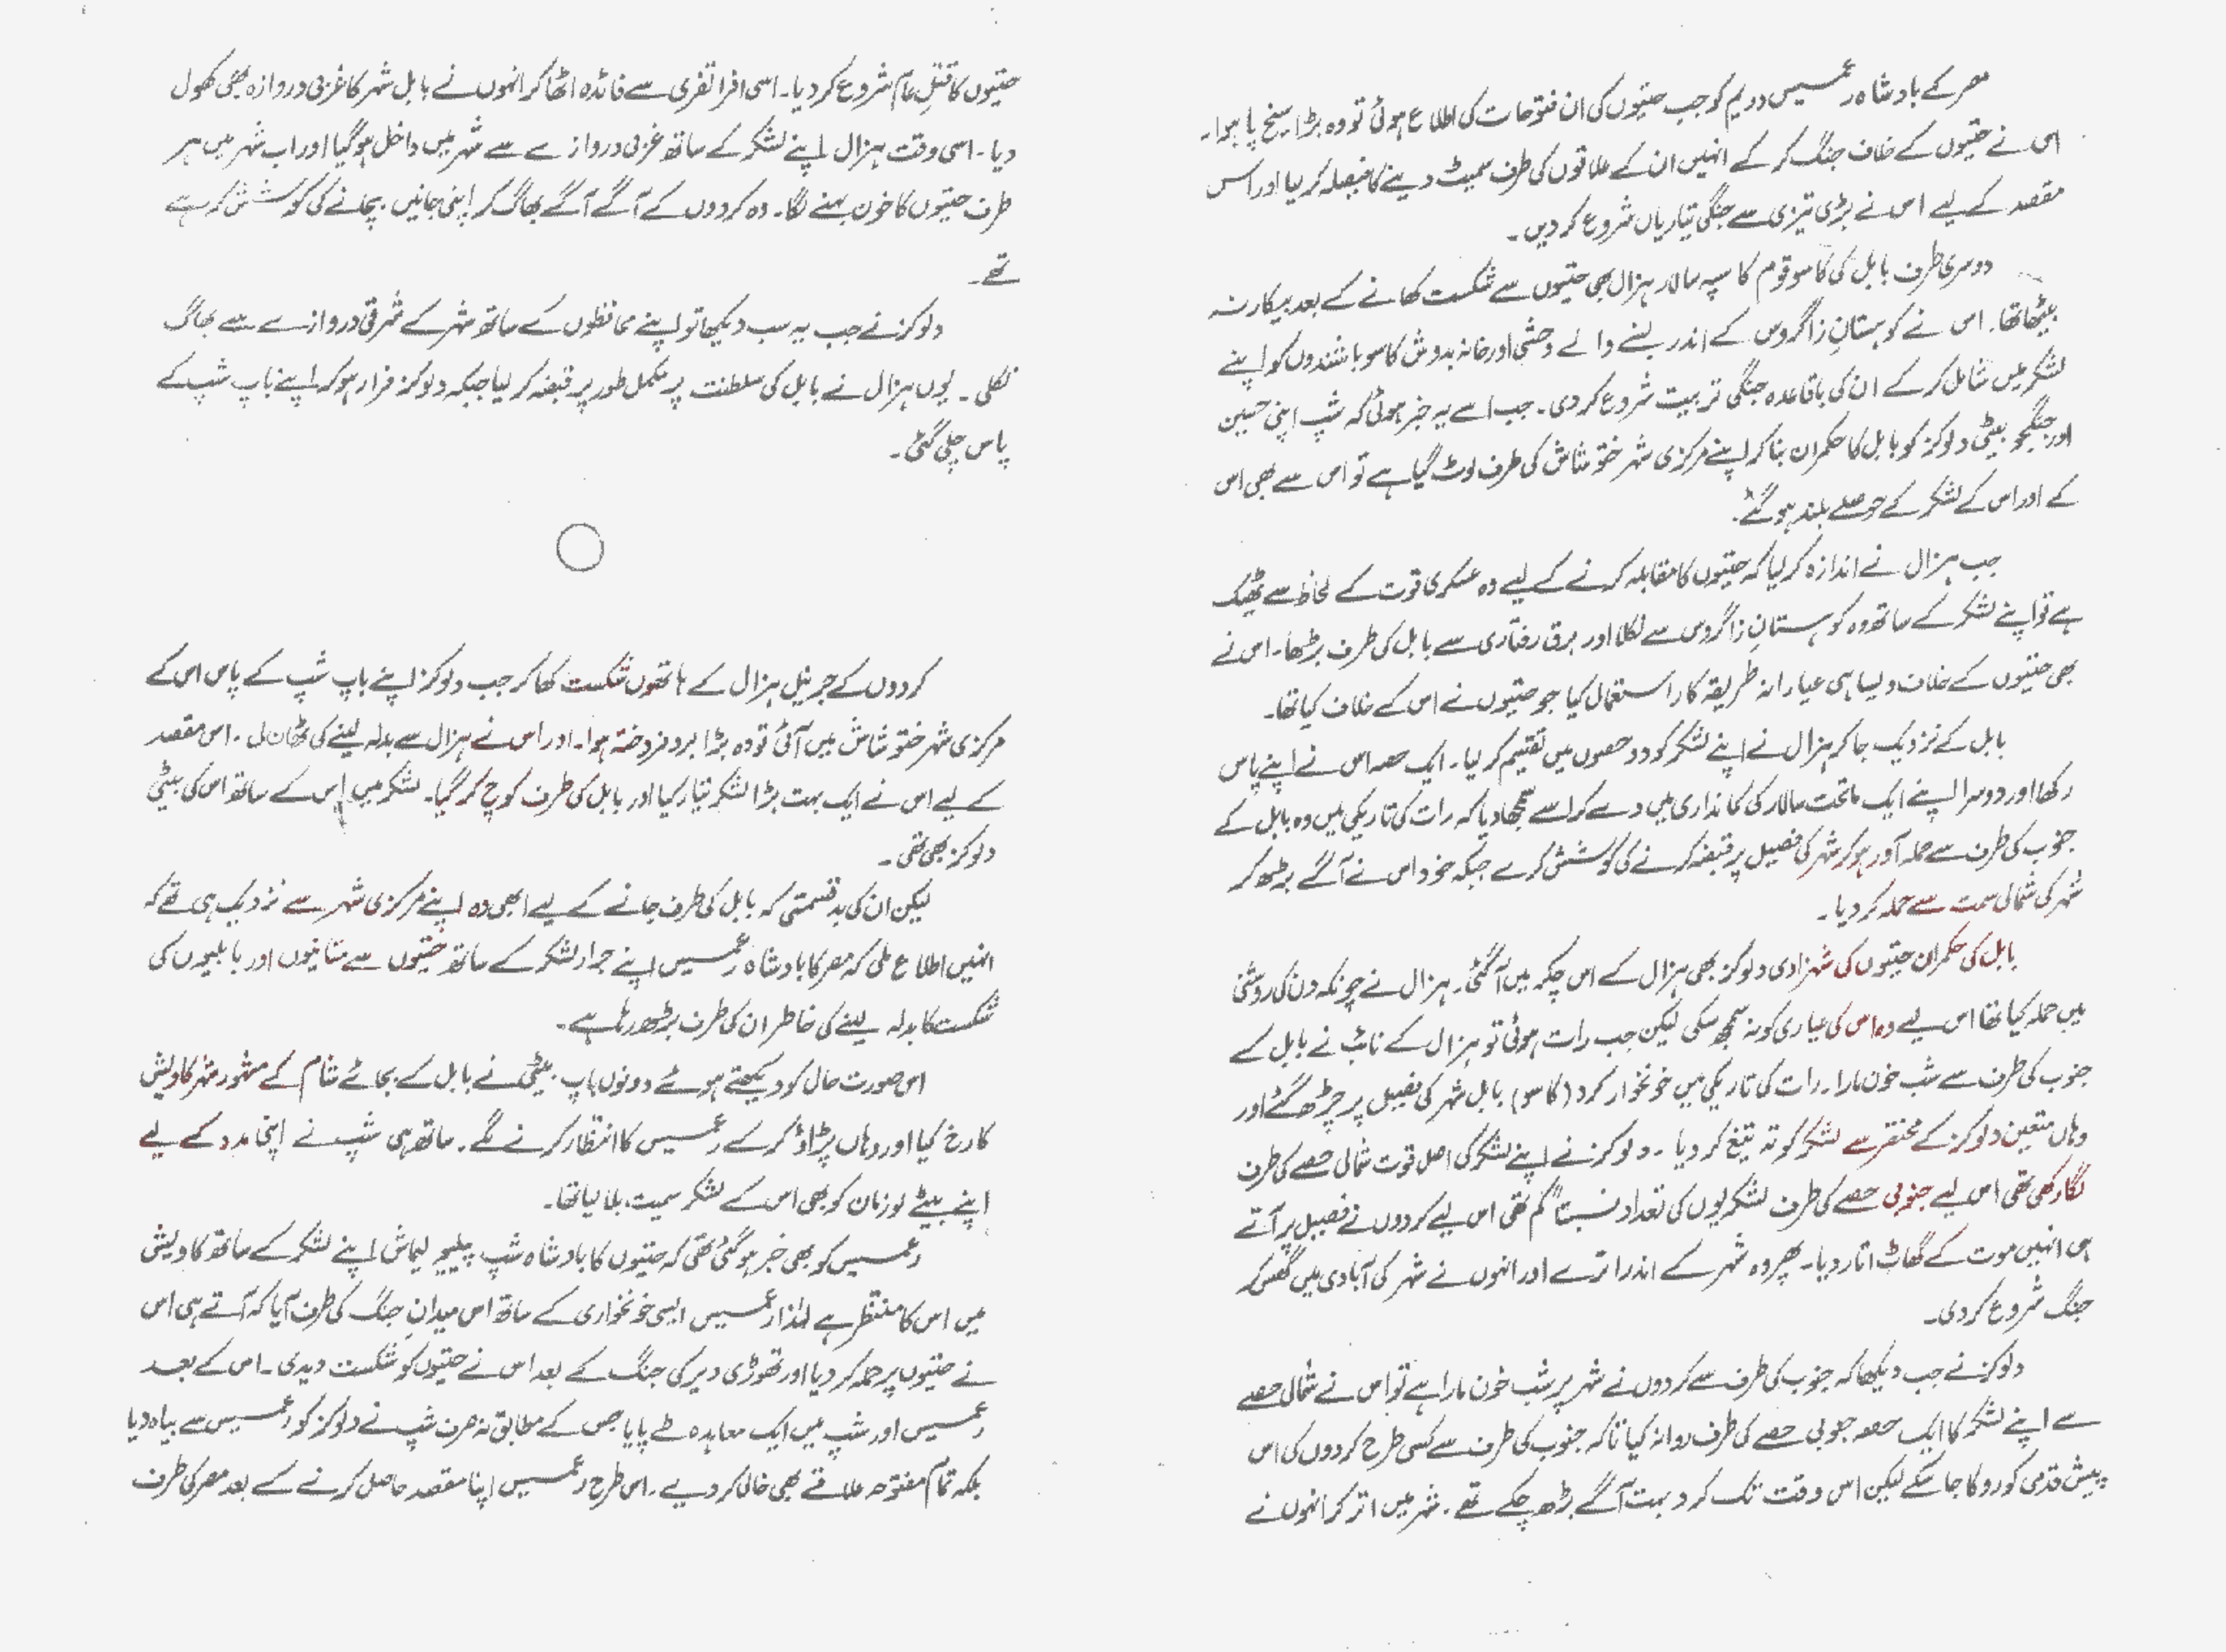 مصر کے بادشاہ رعمسیس دویم کو جب حتیوں کی ان فتوحات کی اطلاع ہوئی تو وہ بڑا سیخ پا ہوا۔
اس نے حتیوں کے خلاف جنگ کر کے انہیں ان کے علاقوں کی طرف سمیٹ دینے کا فیصلہ کر لیا اور اس
مقصد کے لیے اس نے بڑی تیزی سے جنگی تیاریاں شروع کر دیں۔
دوسری طرف بابل کی کاسو قوم کا سپہ سالار ہزال بھی حتیوں سے شکست کھانے کے بعد بیکار نہ
بیٹھا تھا۔ اس نے کوہستانِ زاگروس کے اندر بسنے والے وحشی اور خانہ بدوش کاسو باشندوں کو اپنے
لشکر میں شامل کر کے ان کی باقاعدہ جنگی تربیت شروع کر دی۔ جب اسے یہ خبر ہوئی کہ شپ اپنی حسین
اور جنگجو بیٹی دلوکز کو بابل کا حکمران بنا کر اپنے مرکزی شہر ختو شاش کی طرف لوٹ گیا ہے تو اس سے بھی اس
کے اور اس کے لشکر کے حوصلے بلند ہو گئے۔
جب ہزال نے اندازہ کر لیا کہ حتیوں کا مقابلہ کرنے کے لیے وہ عسکری قوت کے لحاظ سے ٹھیک
ہے تو اپنے لشکر کے ساتھ وہ کوہستانِ زاگروس سے نکلا اور برق رفتاری سے بابل کی طرف بڑھا۔ اس نے
بھی حتیوں کے خلاف ویسا ہی عیارانہ طریقہ کار استعمال کیا جو حتیوں نے اس کے خلاف کیا تھا۔
بابل کے نزدیک جا کر ہزال نے اپنے لشکر کو دو حصوں میں تقسیم کر لیا۔ ایک حصہ اس نے اپنے پاس
رکھا اور دوسرا اپنے ایک ماتحت سالار کی کمانداری میں دے کر اسے سمجھا دیا کہ رات کی تاریکی میں وہ بابل کے
جنوب کی طرف سے حملہ آور ہو کر شہر کی فصیل پر قبضہ کرنے کی کوشش کرے جبکہ خود اس نے آگے بڑھ کر
شہر کی شمالی سمت سے حملہ کر دیا۔
بابل کی حکمران حتیوں کی شہزادی دلوکز بھی ہزال کے اس چکر میں آ گئی۔ ہزال نے چونکہ دن کی روشنی
میں حملہ کیا تھا اس لیے وہ اس کی عیاری کو نہ سمجھ سکی لیکن جب رات ہوئی تو ہزال کے نائب نے بابل کے
جنوب کی طرف سے شب خون مارا۔ رات کی تاریکی میں خونخوار کرد (کاسو) بابل شہر کی فصیل پر چڑھ گئے اور
وہاں متعین دلوکز کے مختصر سے لشکر کو تہ تیغ کر دیا۔ دلوکز نے اپنے لشکر کی اصل قوت شمالی حصے کی طرف
لگا رکھی تھی اس لیے جنوبی حصے کی طرف لشکریوں کی تعداد نسبتاً کم تھی اس لیے کردوں نے فصیل پر آتے
ہی انہیں موت کے گھاٹ اتار دیا۔ پھر وہ شہر کے اندر اترے اور انہوں نے شہر کی آبادی میں گھس کر
جنگ شروع کر دی۔
دلوکز نے جب دیکھا کہ جنوب کی طرف سے کردوں نے شہر پر شب خون مارا ہے تو اس نے شمالی حصے
سے اپنے لشکر کا ایک حصہ جنوبی حصے کی طرف روانہ کیا تاکہ جنوب کی طرف سے کسی طرح کردوں کی اس
پیش قدمی کو روکا جا سکے لیکن اس وقت تک کرد بہت آگے بڑھ چکے تھے۔ شہر میں اتر کر انہوں نے
حتیوں کا قتلِ عام شروع کر دیا۔ اسی افراتفری سے فائدہ اٹھا کر انہوں نے بابل شہر کا غربی دروازہ بھی کھول
دیا۔ اسی وقت ہزال اپنے لشکر کے ساتھ غربی دروازے سے شہر میں داخل ہو گیا اور اب شہر میں ہر
طرف حتیوں کا خون بہنے لگا۔ وہ کردوں کے آگے آگے بھاگ کر اپنی جانیں بچانے کی کوشش کر رہے
تھے۔
دلوکز نے جب یہ سب دیکھا تو اپنے محافظوں کے ساتھ شہر کے شرقی دروازے سے بھاگ
نکلی۔ یوں ہزال نے بابل کی سلطنت پر مکمل طور پر قبضہ کر لیا جبکہ دلوکز فرار ہو کر اپنے باپ شپ کے
پاس چلی گئی۔
کردوں کے جرنیل ہزال کے ہاتھوں شکست کھا کر جب دلوکز اپنے باپ شپ کے پاس اس کے
مرکزی شہر ختو شاش میں آئی تو وہ بڑا برافروختہ ہوا۔ اور اس نے ہزال سے بدلہ لینے کی ٹھان لی۔ اس مقصد
کے لیے اس نے ایک بہت بڑا لشکر تیار کیا اور بابل کی طرف کوچ کر گیا۔ لشکر میں اس کے ساتھ اس کی بیٹی
دلوکز بھی تھی۔
لیکن ان کی بدقسمتی کہ بابل کی طرف جانے کے لیے ابھی وہ اپنے مرکزی شہر سے نزدیک ہی تھے کہ
انہیں اطلاع ملی کہ مصر کا بادشاہ رعمسیس اپنے جرار لشکر کے ساتھ حتیوں سے متانیوں اور بابلیوں کی
شکست کا بدلہ لینے کی خاطر ان کی طرف بڑھ رہا ہے۔
اس صورت حال کو دیکھتے ہوئے دونوں باپ بیٹی نے بابل کے بجائے شام کے مشہور شہر کادیش
کا رخ کیا اور وہاں پڑاؤ کر کے رعمسیس کا انتظار کرنے لگے۔ ساتھ ہی شپ نے اپنی مدد کے لیے
اپنے بیٹے لوزنان کو بھی اس کے لشکر سمیت بلا لیا تھا۔
رعمسیس کو بھی خبر ہو گئی تھی کہ حتیوں کا بادشاہ شپ پیلیج لیماش اپنے لشکر کے ساتھ کادیش
میں اس کا منتظر ہے لہٰذا رعمسیس ایسی خونخواری کے ساتھ اس میدانِ جنگ کی طرف آیا کہ آتے ہی اس
نے حتیوں پر حملہ کر دیا اور تھوڑی دیر کی جنگ کے بعد اس نے حتیوں کو شکست دیدی۔ اس کے بعد
رعمسیس اور شپ میں ایک معاہدہ طے پایا جس کے مطابق نہ صرف شپ نے دلوکز کو رعمسیس سے بیاہ دیا
بلکہ تمام مفتوحہ علاقے بھی خالی کر دیے۔ اس طرح رعمسیس اپنا مقصد حاصل کرنے کے بعد مصر کی طرف